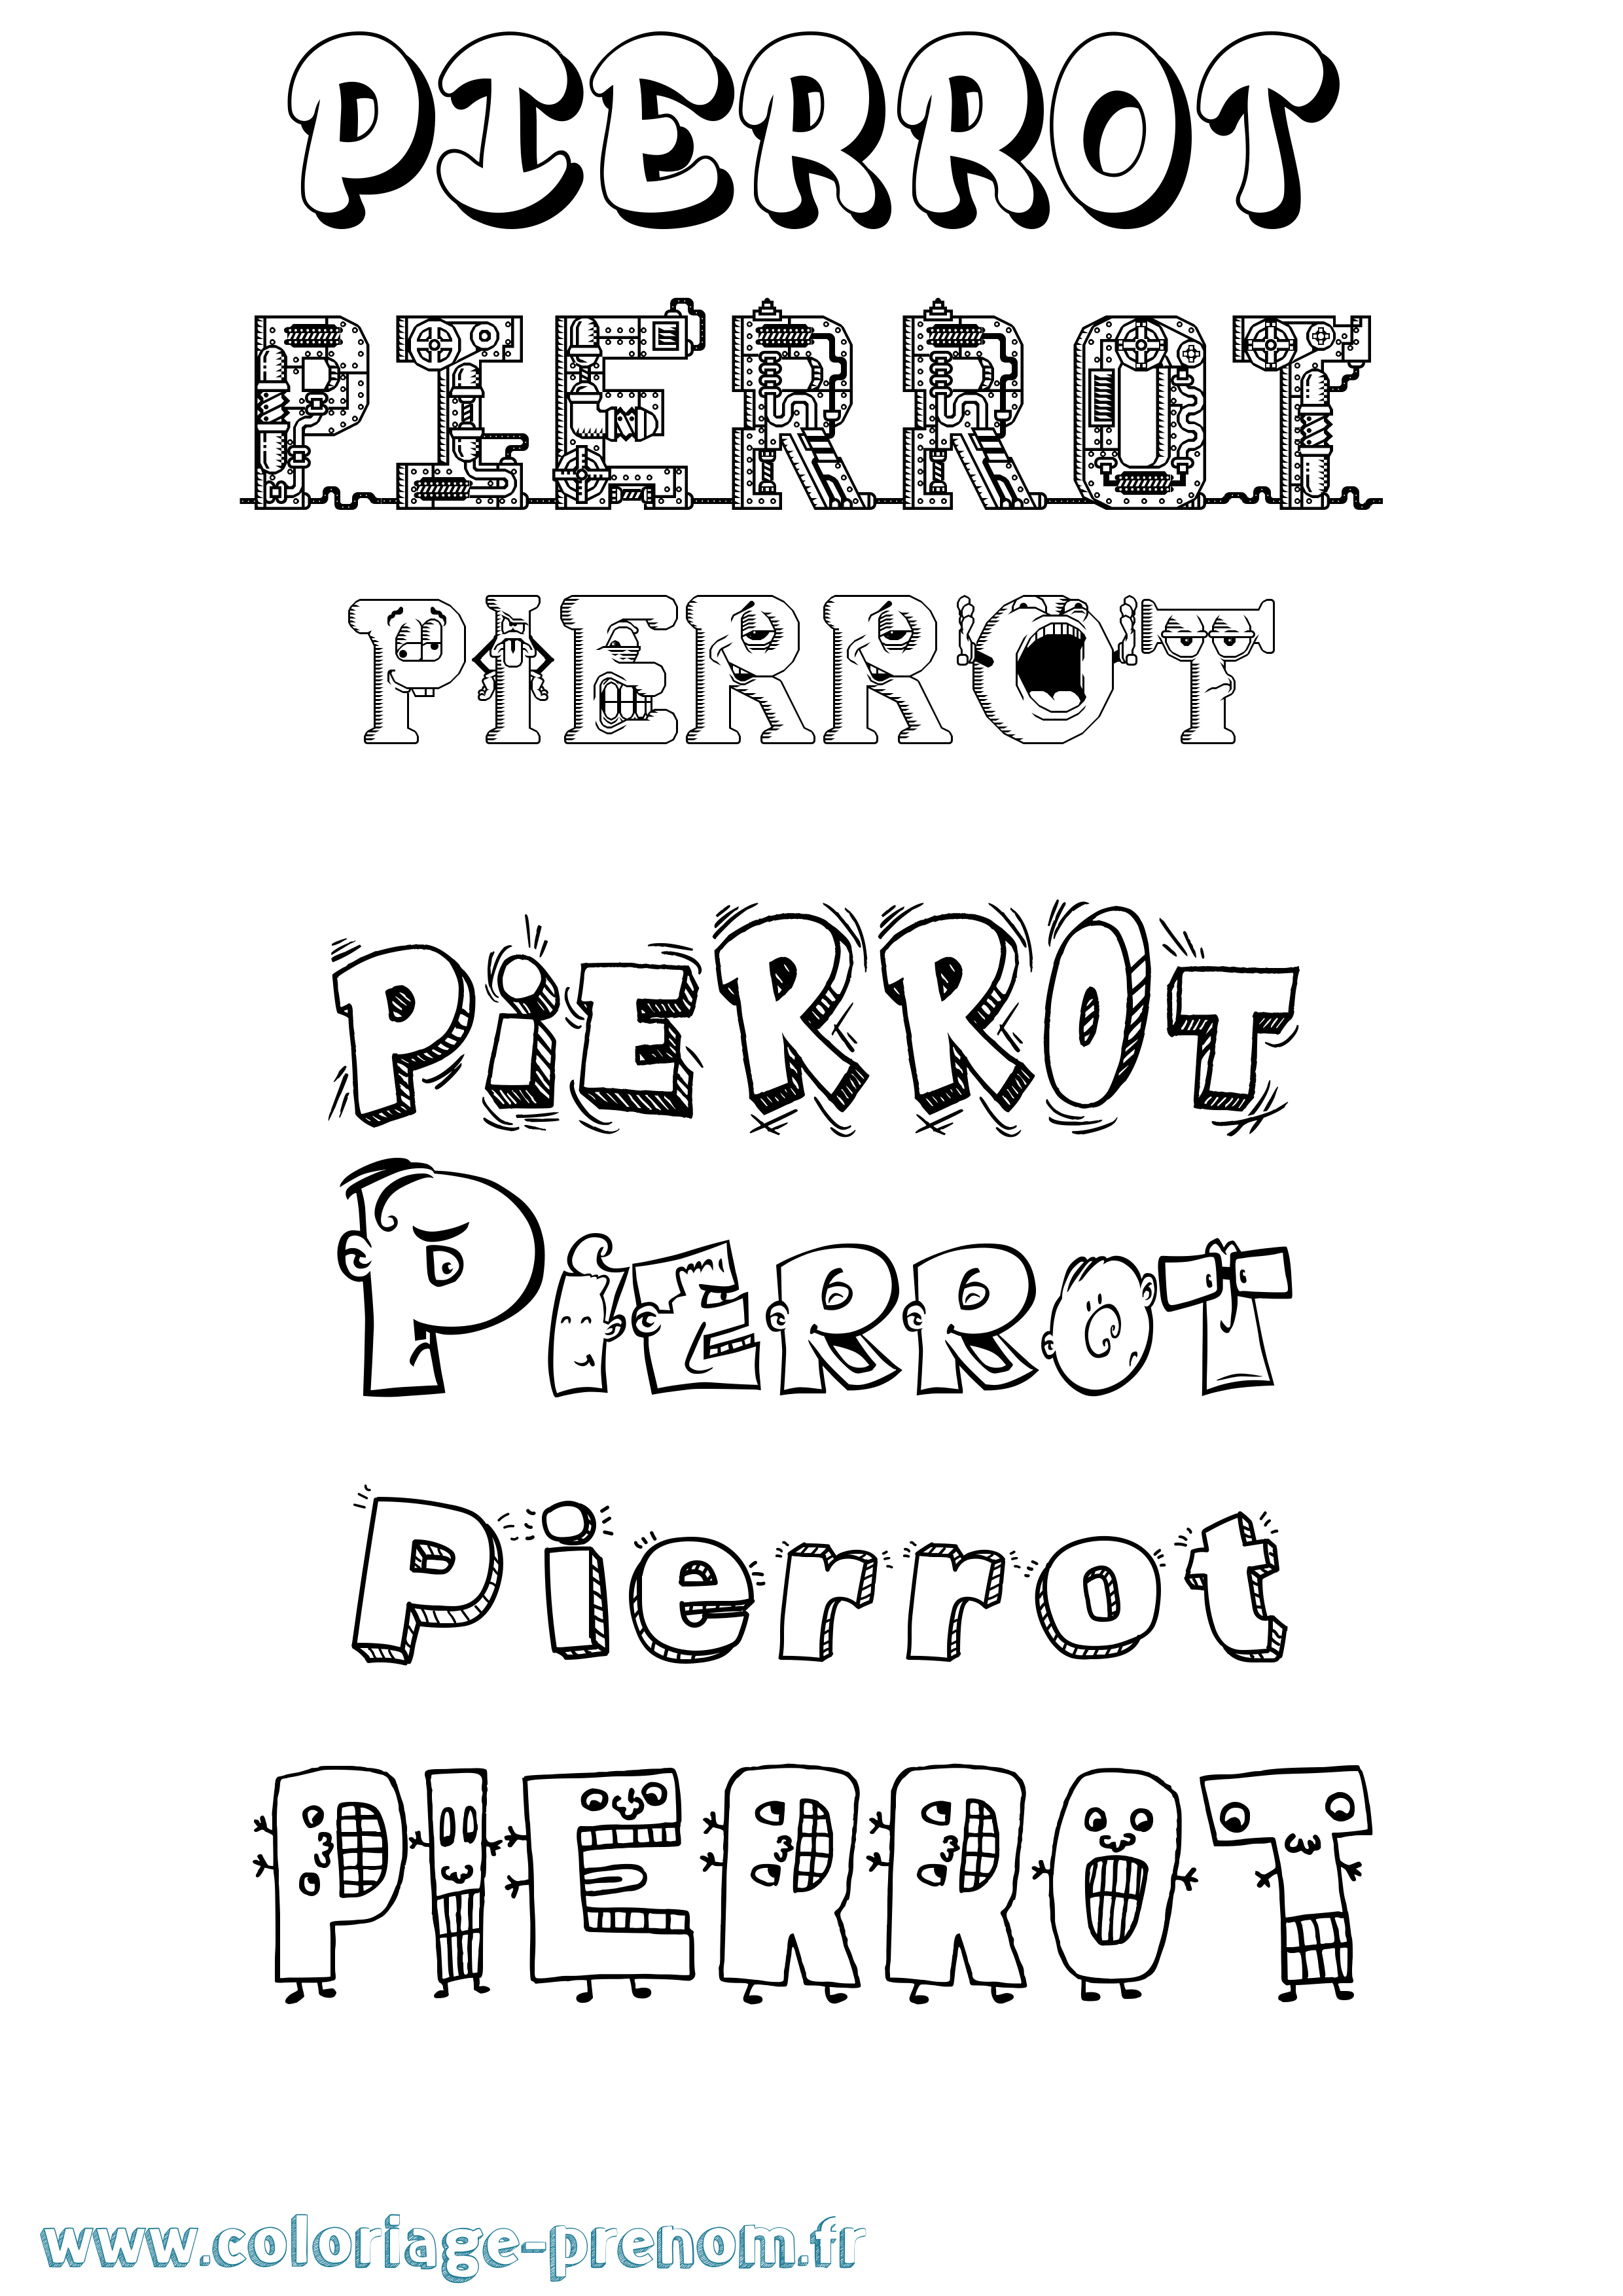 PIERROT
PIERROT
PIERROT
PiERROT
PiERROT
Pierrot
PIERROT
www.coloriage-prenom.fr